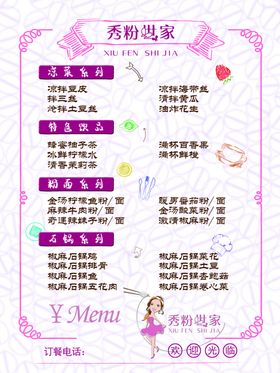 秀粉世家
XIU FEN SHI JIA
凉菜系列
凉拌豆皮
拌三丝
炝拌土豆丝
凉拌海带丝
清拌黄瓜
油炸花生
特色饮品
蜂蜜柚子茶
冰鲜柠檬水
清香茉莉茶
满杯百香果
满杯鲜橙
粉面系列
金汤柠檬鱼粉/面
麻辣牛肉粉/面
奇速辣妹子粉/面
暖男番茄粉/面
金汤酸菜粉/面
激情麻辣粉/面
石锅系列
椒麻石锅鸡
椒麻石锅排骨
椒麻石锅鱼
椒麻石锅五花肉
椒麻石锅菜花
椒麻石锅土豆
椒麻石锅杏鲍菇
椒麻石锅卷心菜
￥Menu
秀粉世家
XIU FEN SHI JIA
订餐电话：
欢迎光临